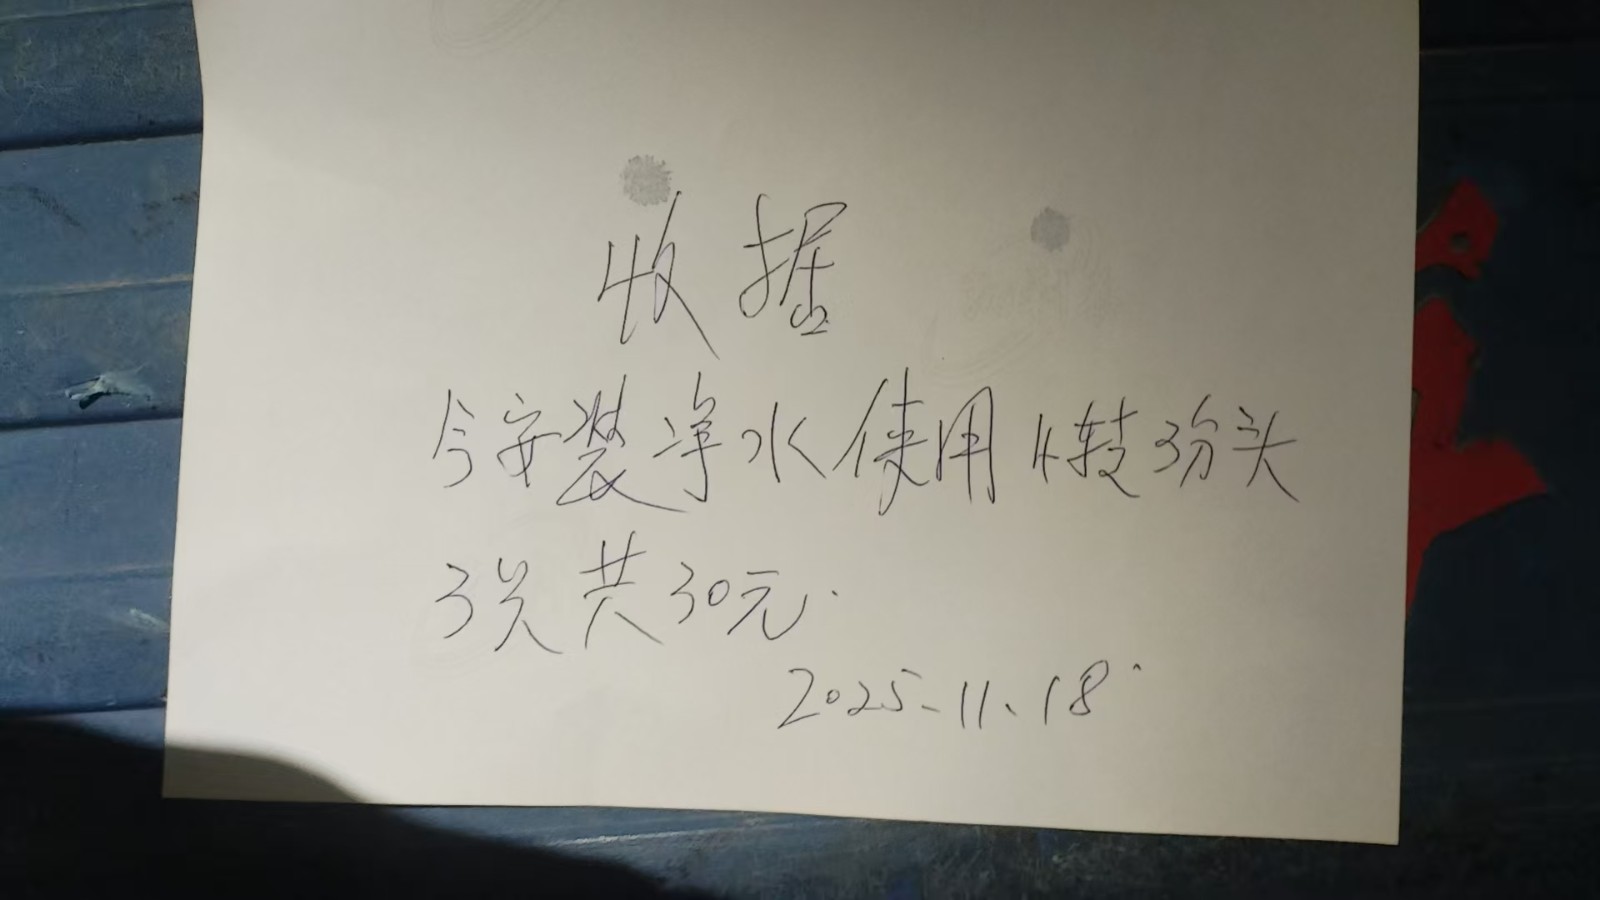 收据
今安装净水使用4转3分头
3只共30元.
2025.11.18